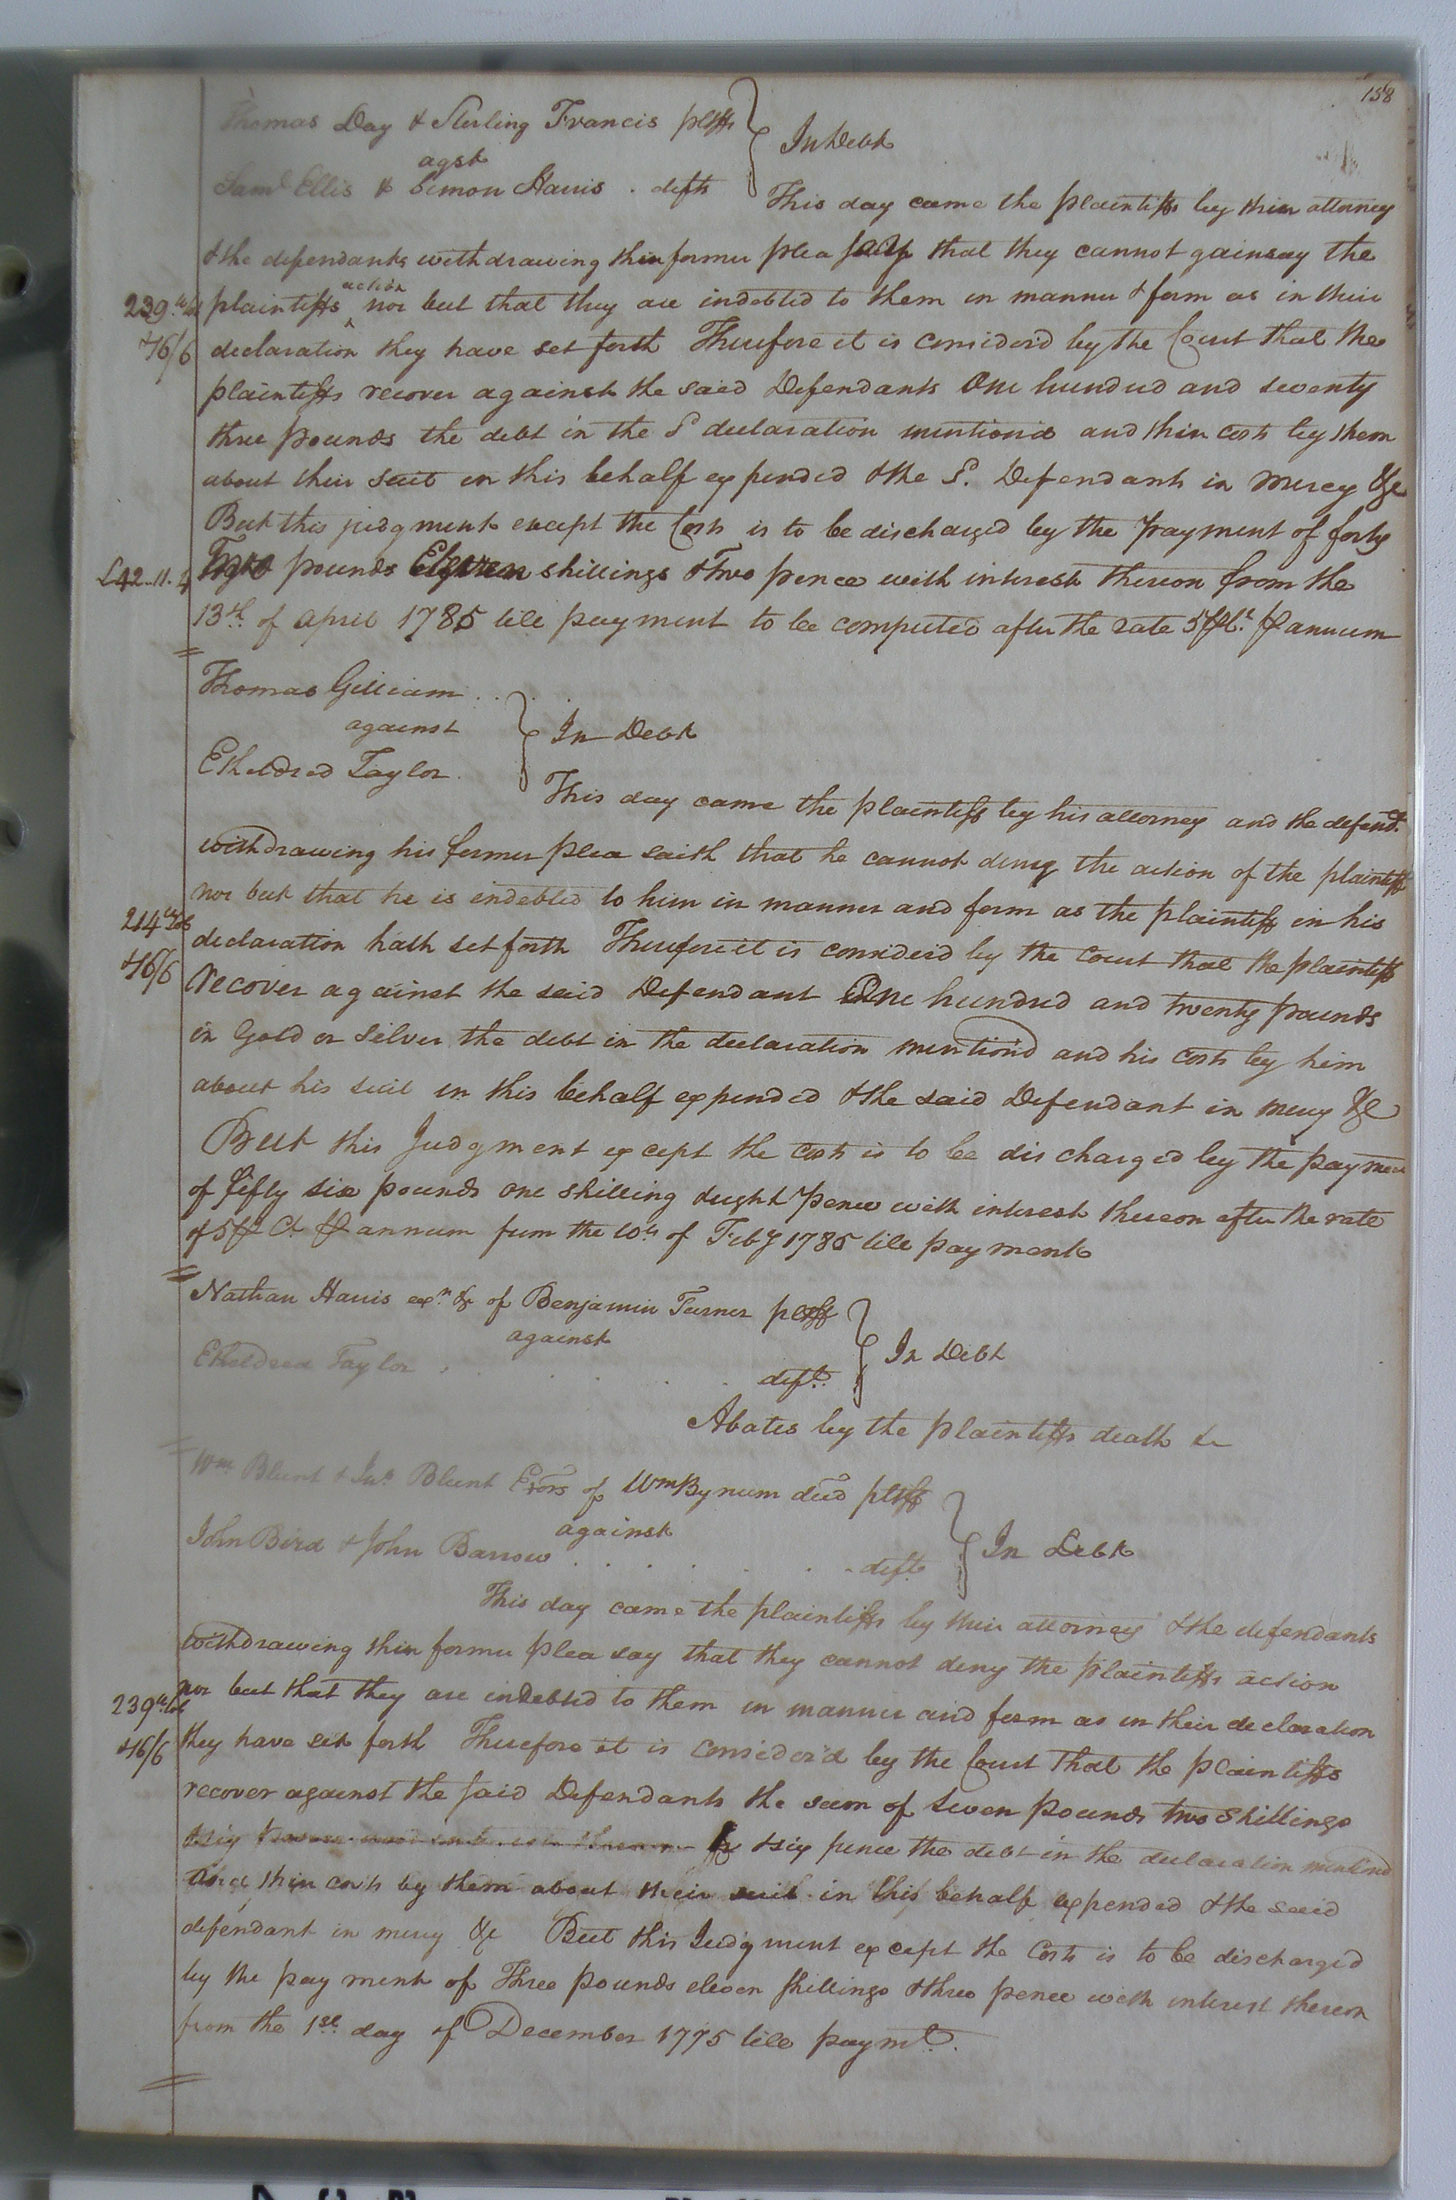 158
Thomas Day & Sterling Francis pltffs
agst
In Debt
Saml Ellis & Simon Harris . defts
This day came the plaintiffs by their attorney
& the defendants withdrawing their former plea say that they cannot gainsay the
action
plaintiffs ^ nor but that they are indebted to them in manner & form as in their
239 lb
declaration they have set forth Therefore it is considerd by the Court that the
46/6
plaintiffs recover against the said Defendants One hundred and seventy
three pounds the debt in the Sd declaration mentioned and their costs by them
about their suit in this behalf expended & the Sd. Defendants in mercy &c
But this judgment except the Costs is to be discharged by the payment of forty
£42..11.
Two pounds Eleven shillings & Two pence with interest thereon from the
13th of April 1785 till payment to be computed after the rate 5 ℔ Ct ℔ annum
Thomas Gilliam . . . .
against
In Debt
Etheldred Taylor .
This day came the plaintiff by his attorney and the defendt.
withdrawing his former plea saith that he cannot deny the action of the plaintiff
nor but that he is indebted to him in manner and form as the plaintiff in his
214
declaration hath set forth Therefore it is considerd by the Court that the plaintiff
46/6
recover against the said Defendant One hundred and twenty pounds
in Gold or Silver the debt in the declaration mention'd and his costs by him
about his suit in this behalf expended & the said Defendant in mercy &c
But this Judgment except the costs is to be discharged by the payment
of fifty six pounds one shilling & eight pence with interest thereon after the rate
of 5 ℔ Ct ℔ annum from the 10th of Feby 1785 till payment
Nathan Harris exr. &c of Benjamin Turner pltff
against
In Debt
Etheldred Taylor . . . . . deft.
Abates by the plaintiffs death &c
Wm Blunt & Jno. Blunt Exors of Wm Bynum decd pltff
against
In Debt
John Bird & John Barrow . . . . . . defts
This day came the plaintiffs by their attorney & the defendants
withdrawing their former plea say that they cannot deny the plaintiffs action
nor but that they are indebted to them in manner and form as in their declaration
239
46/6
they have set forth Therefore it is consider'd by the Court that the plaintiffs
recover against the said Defendants the sum of seven pounds two shillings
& six pence the debt in the declaration mentiond
and their costs by them about their suit in this behalf expended & the said
defendant in mercy &c But this Judgment except the Costs is to be discharged
by the payment of Three pounds eleven shillings & three pence with interest thereon
from the 1st day of December 1775 till paymt.